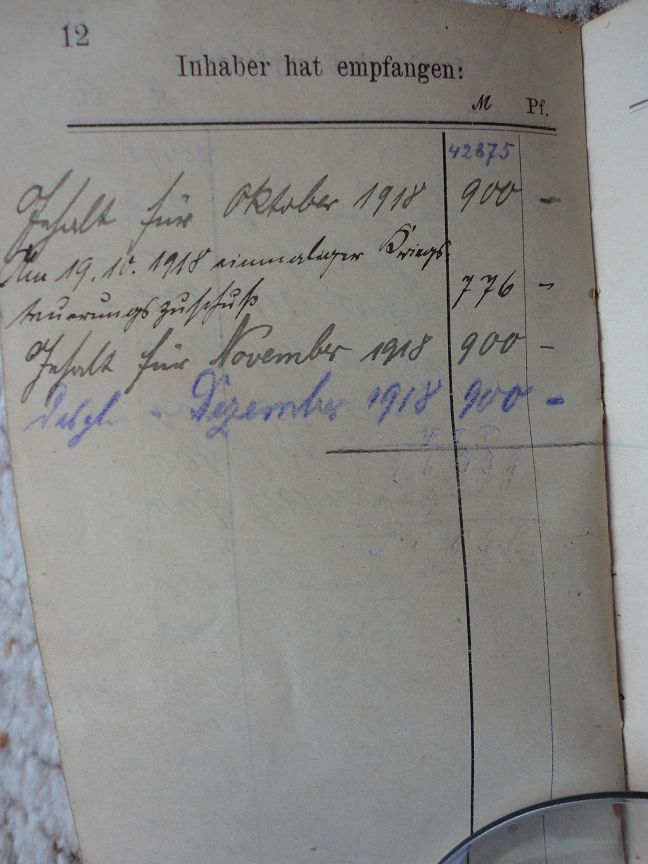 12
Inhaber hat empfangen:
M Pf.
42875
Gehalt für Oktober 1918 900 -
Am 19.10.1918 einmaliger Kriegs
teuerungszuschuß 776 -
Gehalt für November 1918 900 -
Desgl. - Dezember 1918 900 -